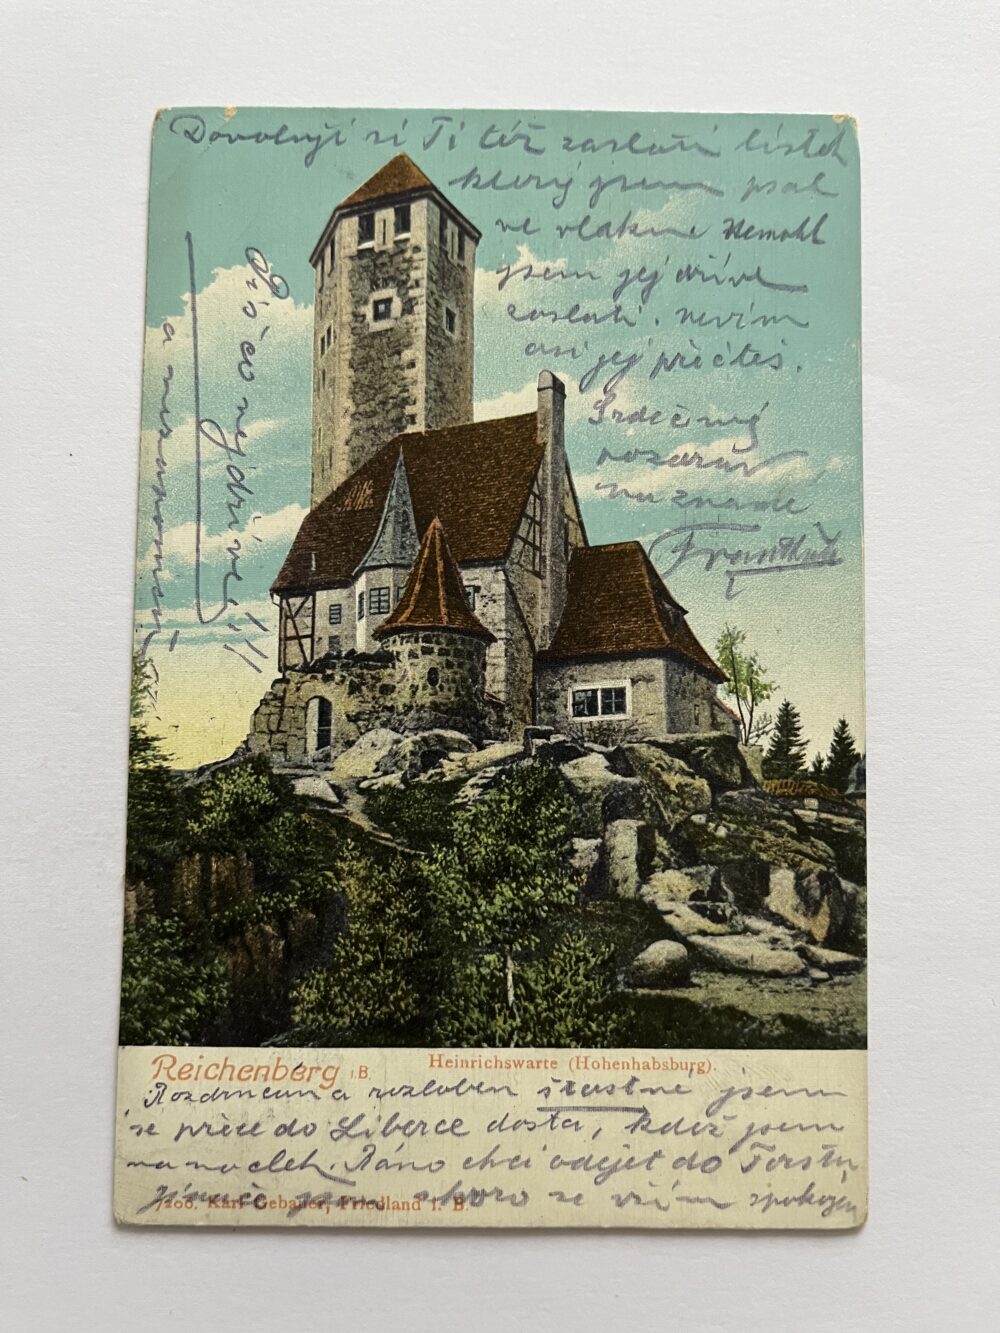 Dovoluji si Ti též zaslati lístek
který jsem psal
ve vlaku Nemohl
jsem jej dříve
zaslati. nevím
asi jej přečteš.
Srdečný
pozdrav
na znamé
František
Piš co nejdříve!!
a nezapomeň
Reichenberg i.B.
Heinrichswarte (Hohenhabsburg).
Rozdrncan a rozloben šťastně jsem
se přece do Liberce dostal, kdež jsem
na nocleh. Ráno chci odejet do
skoro se vším spokojen
7206. Karl Gebauer, Friedland i. B.